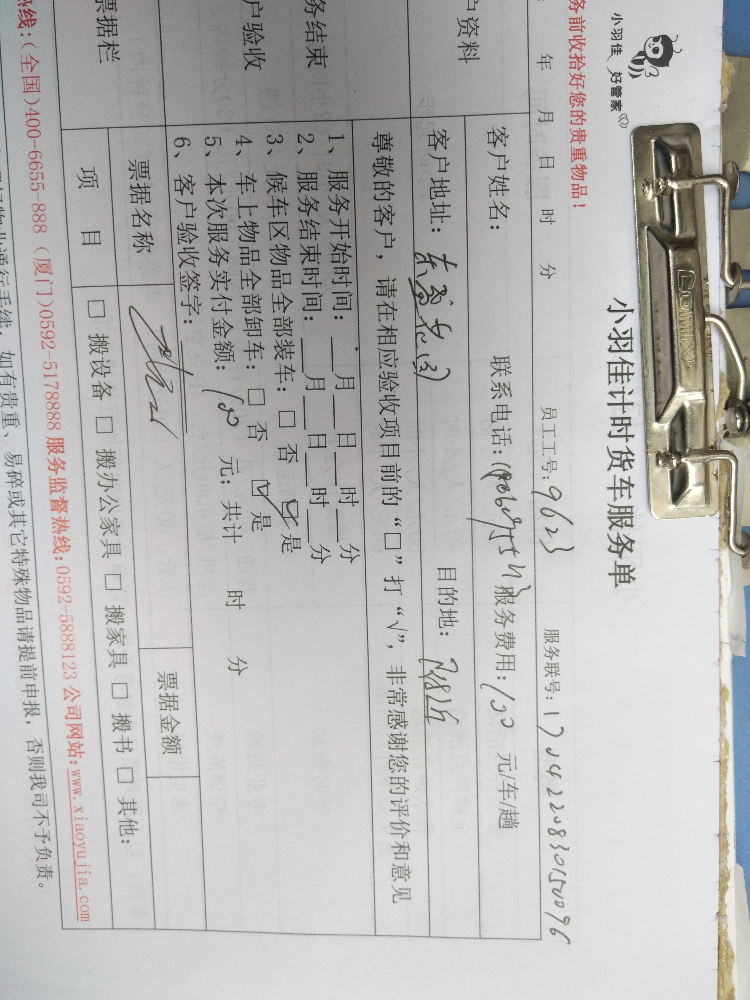 小羽佳 好管家
小羽佳计时货车服务单
务前收拾好您的贵重物品！
年 月 日 时 分 员工工号：9623 服务联号：1704220830150096
户资料
客户姓名： 联系电话： 服务费用：100 元/车/趟
客户地址： 目的地：
尊敬的客户，请在相应验收项目前的“□”打“√”，非常感谢您的评价和意见
务结束
户验收
1、服务开始时间：__月__日__时__分
2、服务结束时间：__月__日__时__分
3、候车区物品全部装车：□ 否 ☑ 是
4、车上物品全部卸车：□ 否 ☑ 是
5、本次服务实付金额：100 元；共计 时 分
6、客户验收签字：
票据栏
票据名称 票据金额
项 目 □ 搬设备 □ 搬办公家具 □ 搬家具 □ 搬书 □ 其他：
热线：(全国)400-6655-888 (厦门)0592-5178888 服务监督热线：0592-5888123 公司网站：www.xiaoyujia.com
物业通行手续，如有贵重、易碎或其它特殊物品请提前申报，否则我司不予负责。
COMIX